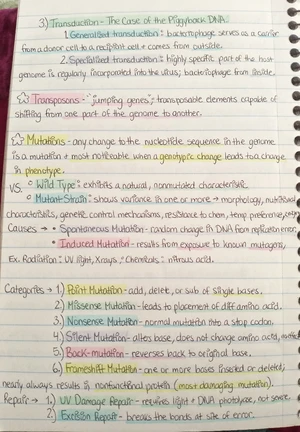 3) Transduction - The Case of the Piggyback DNA
1. Generalized transduction: bacteriophage serves as a carrier
from a donor cell to a recipient cell & comes from outside.
2. Specialized transduction: highly specific part of the host
genome is regularly incorporated into the virus; bacteriophage from inside.
Transposons - "jumping genes"; transposable elements capable of
shifting from one part of the genome to another.
Mutations - any change to the nucleotide sequence in the genome
is a mutation & most noticeable when a genotypic change leads to a change
in phenotype.
VS. Wild Type: exhibits a natural, nonmutated characteristic
Mutant Strain: shows variance in one or more → morphology, nutritional
characteristics, genetic control mechanisms, resistance to chem, temp preference,
Causes → • Spontaneous Mutation - random change in DNA from replication error,
• Induced Mutation - results from exposure to known mutagens,
Ex. Radiation: UV light, Xrays; Chemicals: nitrous acid.
Categories → 1.) Point Mutation - add, delete, or sub of single bases.
2.) Missense Mutation - leads to placement of diff amino acid.
3.) Nonsense Mutation - normal mutation into a stop codon.
4.) Silent Mutation - alters base, does not change amino acid,
5.) Back-mutation - reverses back to original base.
6.) Frameshift Mutation - one or more bases inserted or deleted;
nearly always results in nonfunctional protein (most damaging mutation).
Repair → 1.) UV Damage Repair - requires light & DNA photolyase, not severe.
2.) Excision Repair - breaks the bonds at site of error.